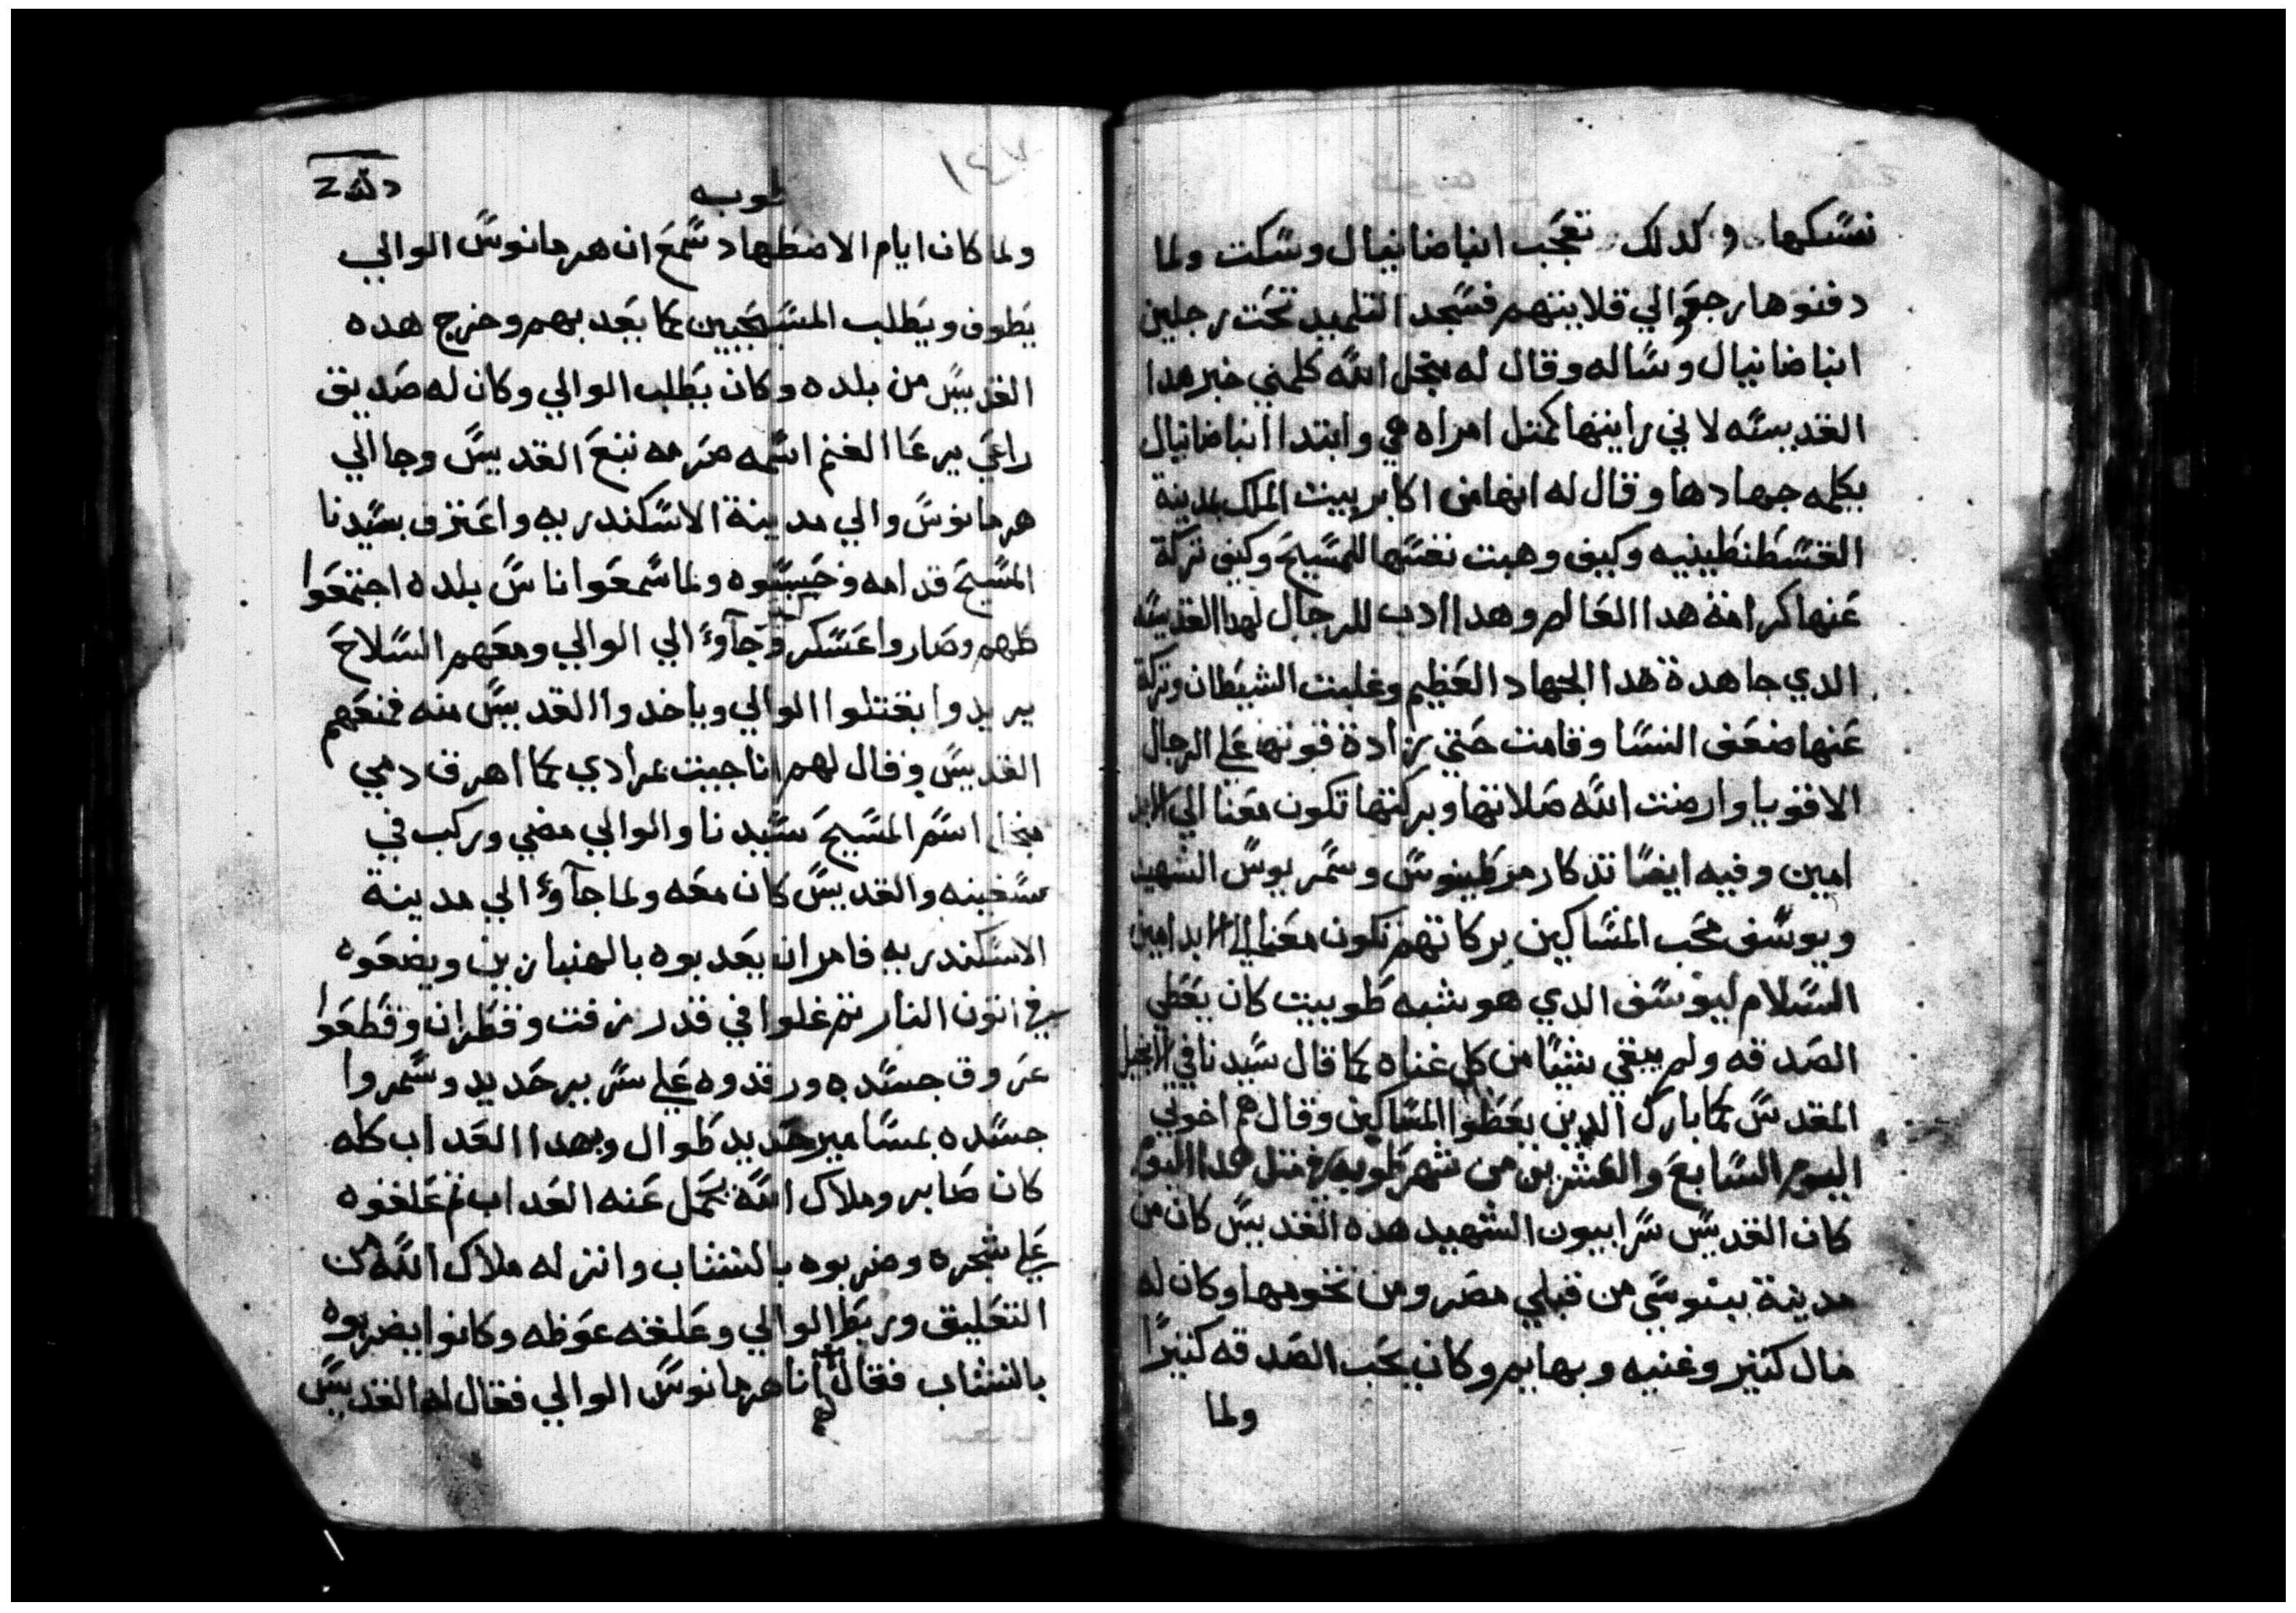 نسكها وكدلك تعجب انبا ضانيال وسكت ولما
دفنوها رجعوا الي قلايتهم فسجد التلميد تحت رجلين
انبا ضانيال وساله وقال له منجل الله كلمني خبر هدا
القديسه لاني رايتها كمتل امراه هي وابتدا انبا ضانيال
يكلمه جهادها وقال له انها من اكابر بيت الملك بمدينة
القسطنطينيه وكيف وهبت نفسها للمسيح وكيف تركة
عنها كرامة هدا العالم وهدا ادب للرجال لهدا القديسه
الدي جاهدة هدا الجهاد العظيم وغلبت الشيطان وتركة
عنها ضعف النسا وقامت حتي زادة قوتها علي الرجال
الاقويا وارضت الله صلاتها وبركتها تكون معنا الي الابد
امين وفيه ايضا تدكار مرطينوس وسمريوس الشهيد
ويوسف محب المساكين بركاتهم تكون معنا الي الابد امين
السلام ليوسف الدي هو شبه طوبيت كان يعطي
الصدقه ولم يبقي شيا من كل غناه كما قال سيدنا في الانجيل
المقدس كما بارك الدين يعطوا المساكين وقال هم اخوتي
اليوم السابع والعشرين من شهر طوبه في متل هدا اليوم
كان القديس سرابيون الشهيد هده القديس كان من
مدينة بينوسي من قبلي مصر ومن تخومها وكان له
مال كتير وغنيه وبهايم وكان يحب الصدقه كتيرا
ولما
١٤٧
طوبه
ولما كان ايام الاضطهاد سمع ان هرمانوس الوالي
يطوف ويطلب المسيحيين كما يعدبهم وخرج هده
القديس من بلده وكان يطلب الوالي وكان له صديق
راعي يرعا الغنم اسمه تبع القديس وجا الي
هرمانوس والي مدينة الاسكندريه واعترف بسيدنا
المسيح قدامه وحبسوه ولما سمعوا ناس بلده اجتمعوا
كلهم وصاروا عسكر وجآوءا الي الوالي ومعهم السلاح
يريدوا يقتلوا الوالي وياخدوا القديس منه فمنعهم
القديس وقال لهم انا جيت بمرادي كما اهرق دمي
منجل اسم المسيح سيدنا والوالي مضي وركب في
سفينه والقديس كان معه ولما جآوءا الي مدينة
الاسكندريه فامر ان يعدبوه بالهنبازين ويضعوه
في اتون النار تم غلوا في قدر زفت وقطران وقطعوا
عروق جسده ورقدوه علي سرير حديد وسمروا
جسده بمسامير حديد طوال وبهدا العداب كله
كان صابر وملاك الله يحمل عنه العداب تم علقوه
علي شجره وضربوه بالنشاب وانزله ملاك الله من
التعليق وربط الوالي وعلقه عوظه وكانوا يضربوه
بالنشاب فقال انا هرمانوس الوالي فقال لهم القديس